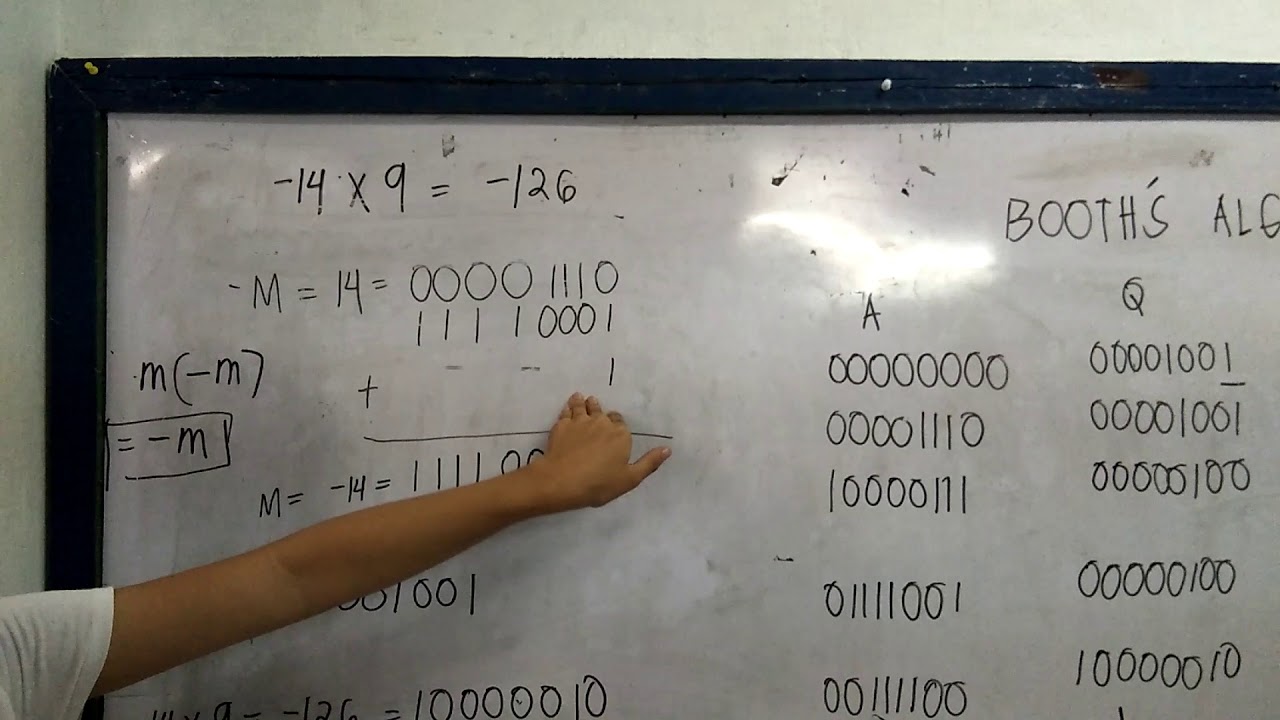 -14 x 9 = -126
-M = 14 = 00001110
11110001
m(-m)
+ 1
= -m
M = -14 = 111100
001001
= -126 = 10000010
BOOTH'S
A Q
00000000 00001001
00001110 00001001
10000111 00000100
01111001 00000100
00111100 10000010